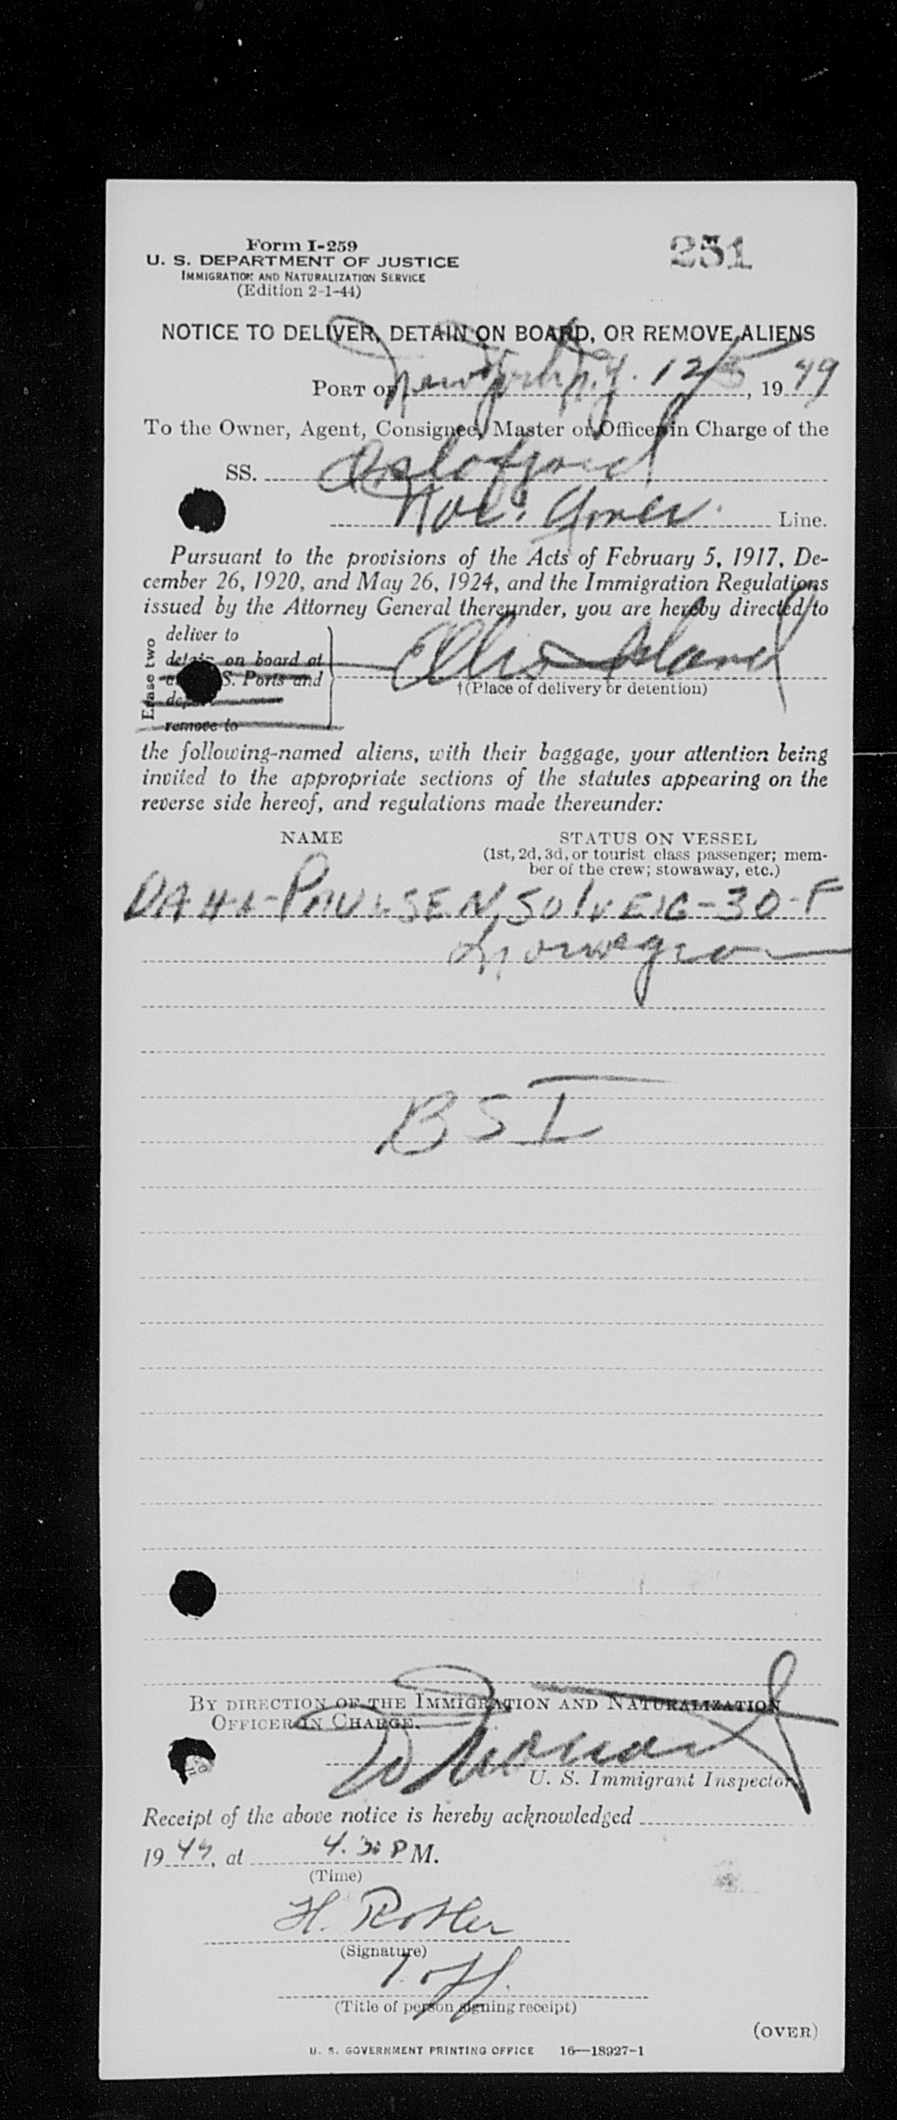 Form I-259
251
U. S. DEPARTMENT OF JUSTICE
IMMIGRATION AND NATURALIZATION SERVICE
(Edition 2-1-44)
NOTICE TO DELIVER, DETAIN ON BOARD, OR REMOVE ALIENS
PORT OF New York N.Y. 12/5, 19 49
To the Owner, Agent, Consignee, Master or Officer in Charge of the
SS. Oslofjord
Nor. Amer. Line.
Pursuant to the provisions of the Acts of February 5, 1917, De-
cember 26, 1920, and May 26, 1924, and the Immigration Regulations
issued by the Attorney General thereunder, you are hereby directed to
Erase two
deliver to
detain on board at
S. Ports and
remove to
Ellis Island
†(Place of delivery or detention)
the following-named aliens, with their baggage, your attention being
invited to the appropriate sections of the statutes appearing on the
reverse side hereof, and regulations made thereunder:
NAME
STATUS ON VESSEL
(1st, 2d, 3d, or tourist class passenger; mem-
ber of the crew; stowaway, etc.)
DAHL-PAULSEN, SOLVEIG-30-F
Norwegian
BSI
BY DIRECTION OF THE IMMIGRATION AND NATURALIZATION
OFFICER IN CHARGE.
U. S. Immigrant Inspector
Receipt of the above notice is hereby acknowledged
19 49, at 4.30 P M.
(Time)
H.
(Signature)
(Title of person signing receipt)
(OVER)
U. S. GOVERNMENT PRINTING OFFICE 16—18927-1